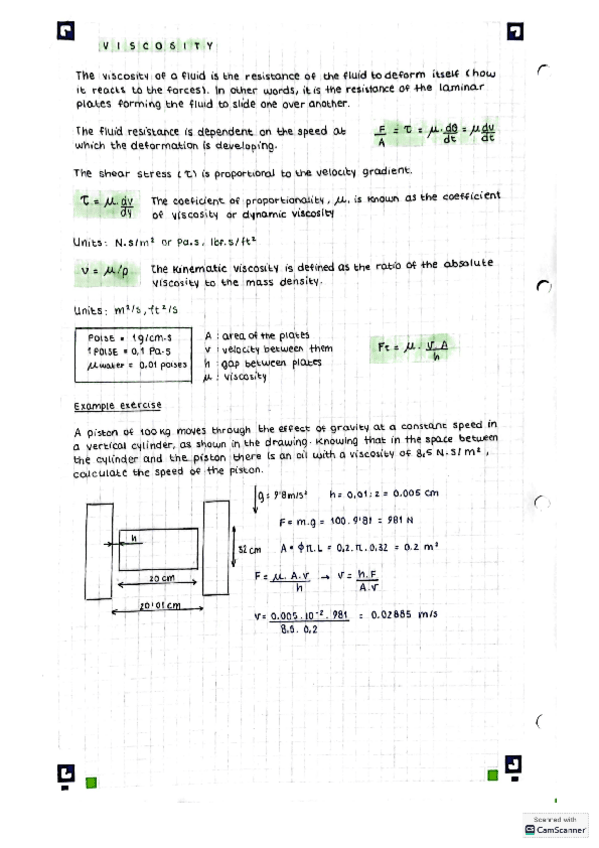 VISCOSITY
The viscosity of a fluid is the resistance of the fluid to deform itself (how
it reacts to the forces). In other words, it is the resistance of the laminar
plates forming the fluid to slide one over another.
The fluid resistance is dependent on the speed at
which the deformation is developing.
F/A = τ = μ · dθ/dt = μ dv/dt
The shear stress (τ) is proportional to the velocity gradient.
τ = μ · dv/dy
The coeficient of proportionality, μ, is known as the coefficient
of viscosity or dynamic viscosity
Units: N.s/m² or Pa.s, lbf.s/ft²
ν = μ/ρ
The kinematic viscosity is defined as the ratio of the absolute
viscosity to the mass density.
Units: m²/s, ft²/s
Poise = 1g/cm.s
1 Poise = 0,1 Pa.s
μ water = 0.01 poises
A : area of the plates
v : velocity between them
h : gap between plates
μ : viscosity
Ft = μ · v.A/h
Example exercise
A piston of 100 kg moves through the effect of gravity at a constant speed in
a vertical cylinder, as shown in the drawing. Knowing that in the space between
the cylinder and the piston there is an oil with a viscosity of 8,5 N.s/m²,
calculate the speed of the piston.
g = 9'8 m/s² h = 0,01 : 2 = 0.005 cm
F = m.g = 100 . 9'81 = 981 N
A = ϕ π. L = 0,2. π. 0,32 = 0.2 m²
F = μ. A.v/h → v = h.F/A.v
v = 0.005 . 10⁻² . 981/8.5. 0,2 = 0.02885 m/s
h
32 cm
20 cm
20'01 cm
Scanned with
CS CamScanner